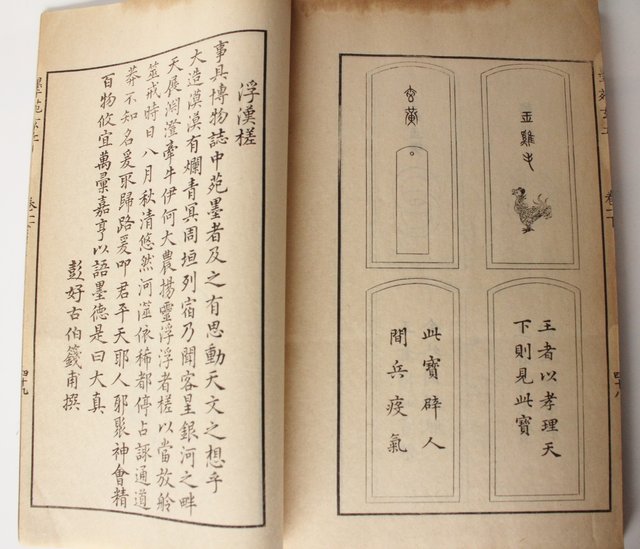 玉雞毛
王者以孝理天
下則見此寶
玄黃
此寶辟人
間兵疫氣
四十八
浮漢槎
事具博物誌中苑墨者及之有思動天文之想乎
大造漠漠有爛青冥周垣列宿乃聞客星銀河之畔
天晨淵澄牽牛伊何大農揚靈浮浮者槎以當放舲
筮戒時日八月秋清悠然河澨依稀都停占諏通道
莽不知名爰取歸路爰叩君平天耶人耶聚神會精
百物攸宜萬彙嘉亨以語墨德是曰大真
彭好古伯籛甫撰
四十九